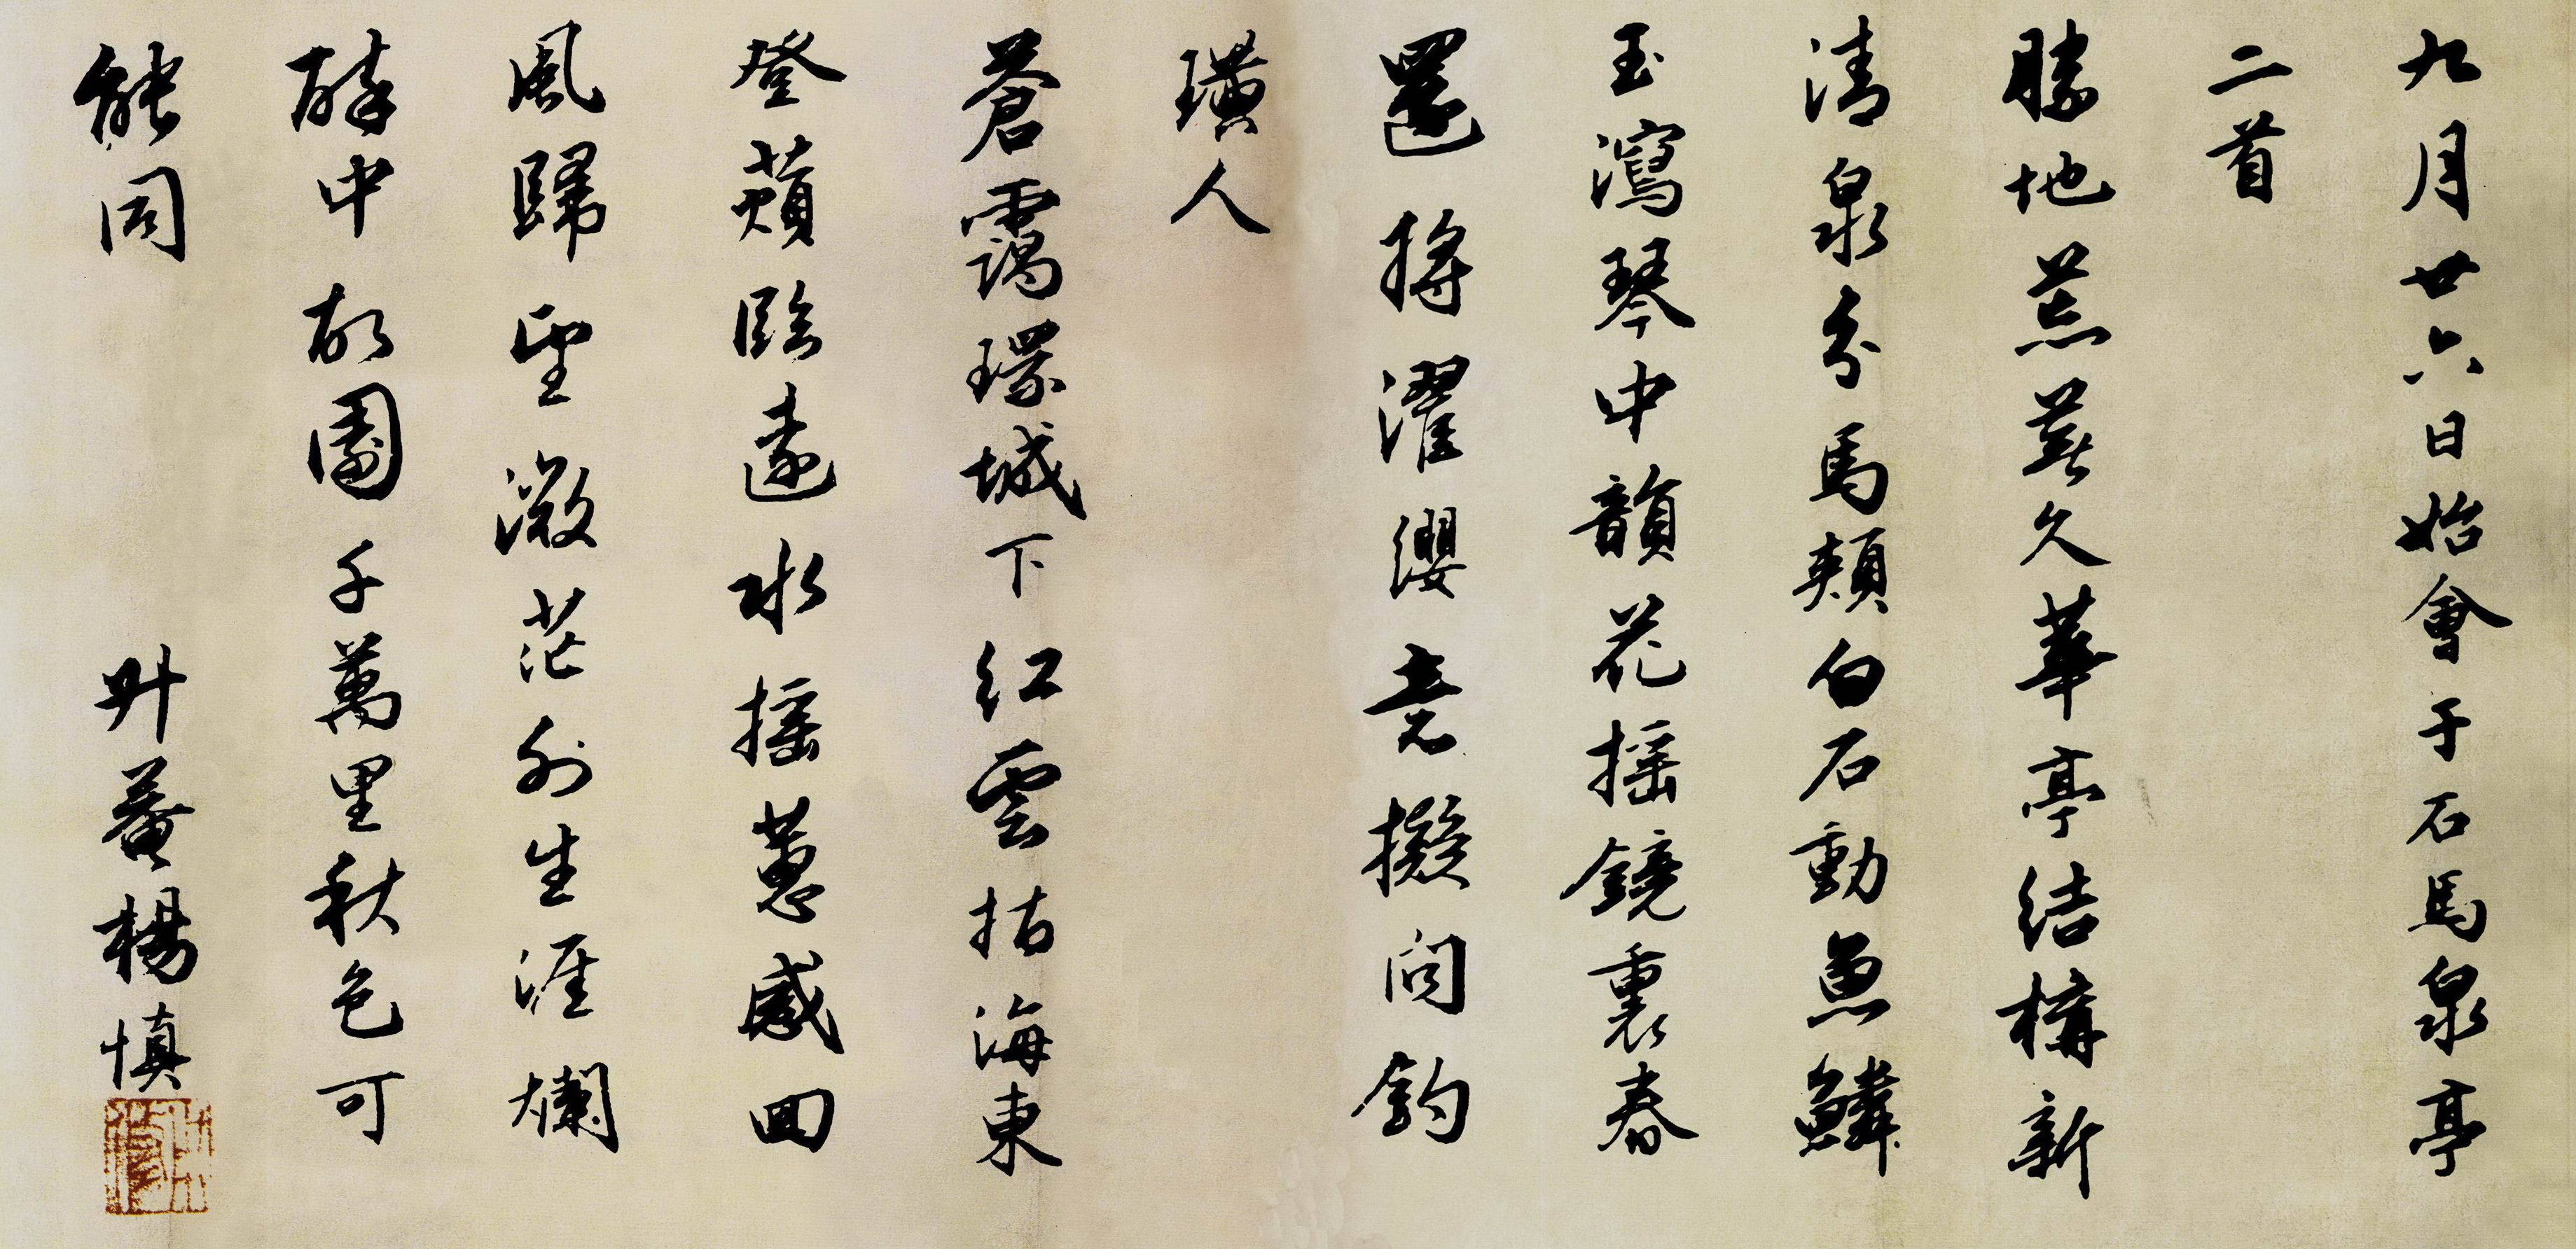 九月廿六日始會于石馬泉亭
二首
勝地荒蕪久華亭結構新
清泉分馬頰白石動魚鱗
玉瀉琴中韻花摇鏡裏春
還將濯纓意擬問釣
璜人
蒼靄環城下紅雲拮海東
登蘋臨遠水摇蕙感回
風歸望微茫外生涯爛
醉中故園千萬里秋色可
能同
升菴楊慎